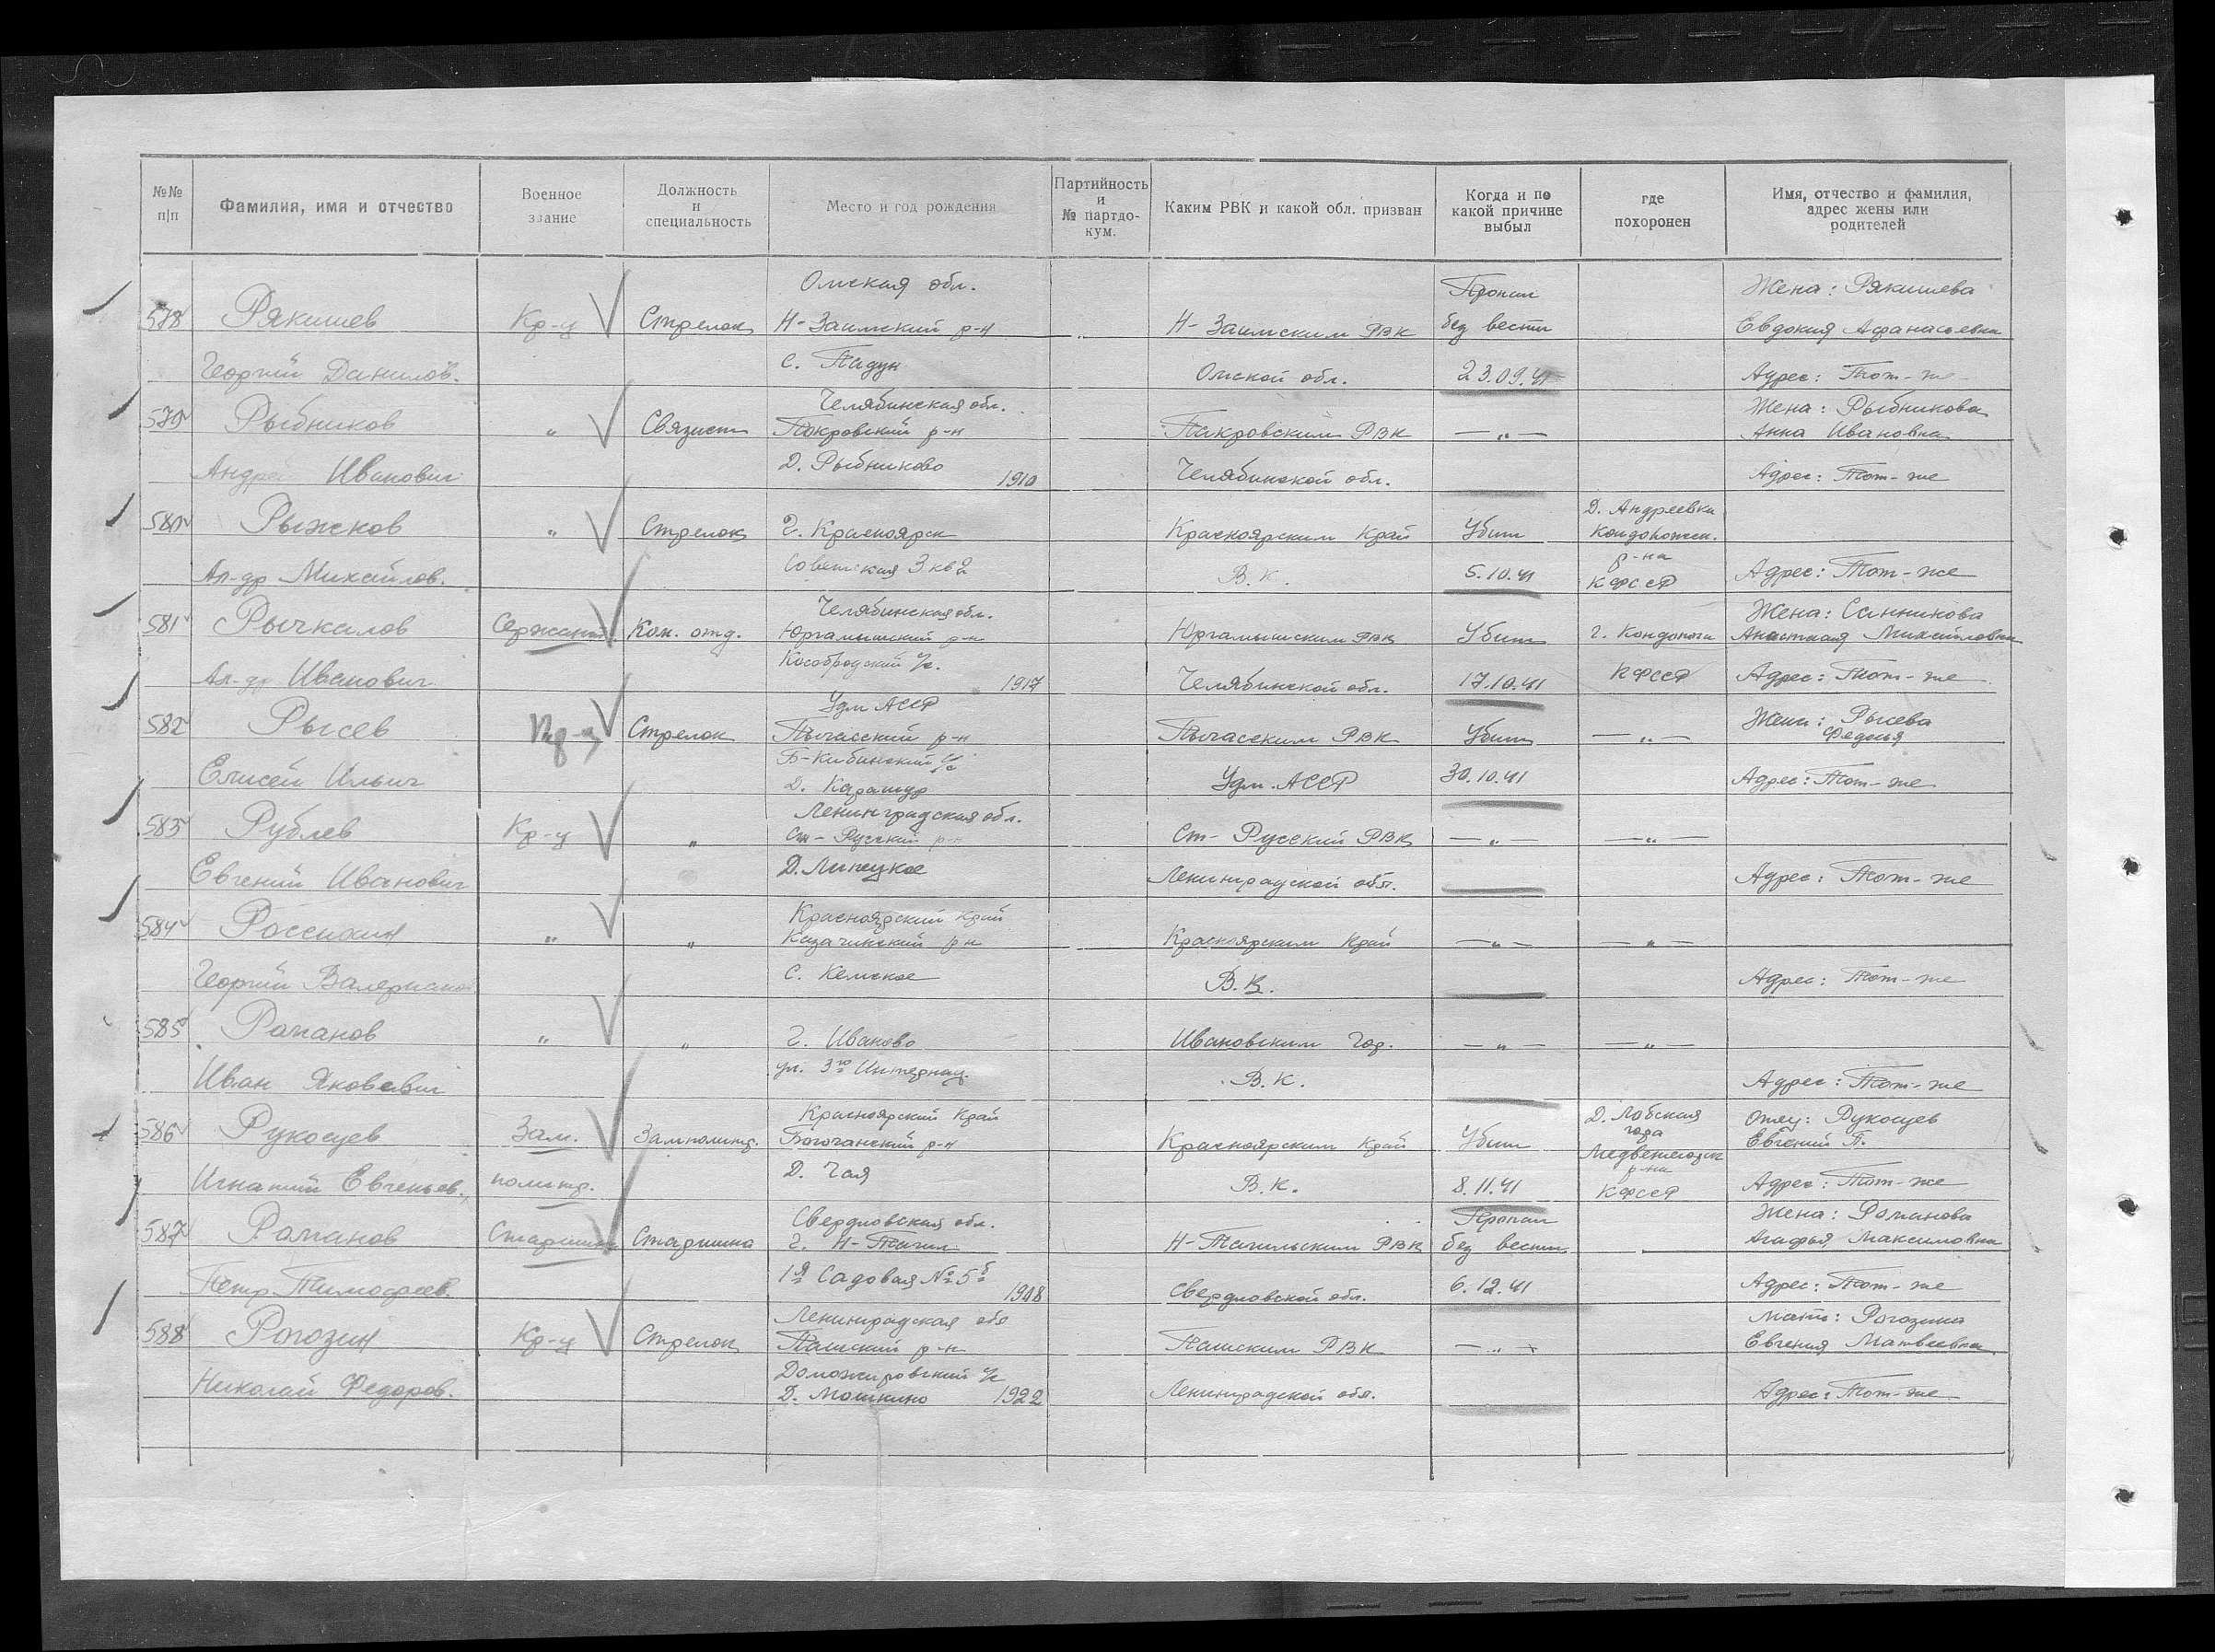 №№ п|п Фамилия, имя и отчество Военное звание Должность и специальность Место и год рождения Партийность и № партдокум. Каким РВК и какой обл. призван Когда и по какой причине выбыл где похоронен Имя, отчество и фамилия, адрес жены или родителей
Омская обл. Пропал Жена: Рякишева
578 Рякишев Кр-ц Стрелок Н-Заимский р-н Н-Заимским РВК без вести Евдокия Афанасьевна
Георгий Данилов. с. Падун Омской обл. 23.09.41 Адрес: Тот-же
Челябинская обл. Жена: Рыбникова
579 Рыбников " Связист Покровский р-н Покровским РВК —"— Анна Ивановна
Андрей Иванович Д. Рыбниково 1910 Челябинской обл. Адрес: Тот-же
Д. Андреевка
580 Рыжков " Стрелок г. Красноярск Красноярским Край Убит Кондопожск.
р-на
Ал-др Михайлов. Советская 3 кв 2 В.К. 5.10.41 КФССР Адрес: Тот-же
Челябинская обл. Жена: Санникова
581 Рычкалов Сержант Ком. отд. Юргамышский р-н Юргамышским РВК Убит г. Кондопога Анастасия Михайловна
Ал-др Иванович Кособродский с/с. 1917 Челябинской обл. 17.10.41 КФССР Адрес: Тот-же
Удм АССР Жена: Рысева
582 Рысев Кр-ц Стрелок Пычасский р-н Пычасским РВК Убит —"— Федосья
Б-Кибинский с/с
Елисей Ильич Д. Карашур Удм. АССР 30.10.41 Адрес: Тот-же
Ленинградская обл.
583 Рублев Кр-ц " Ст-Русский р-н Ст-Русский РВК —"— —"—
Евгений Иванович Д. Липецкое Ленинградской обл. Адрес: Тот-же
Красноярский край
584 " " Казачинский р-н Красноярским Край —"— —"—
Георгий с. Кемское В.К. Адрес: Тот-же
585 Романов " " г. Иваново Ивановским Гор. —"— —"—
Иван Яковлевич ул. 3го Интернац. В.К. Адрес: Тот-же
Красноярский Край Д. Лобская Отец: Рукосуев
гора
586 Рукосуев Зам. Замполитр. Богочанский р-н Красноярским Край Убит Медвежегорск Евгений П.
р-на
Игнатий Евгеньев. политр. Д. Чая В.К. 8.11.41 КФССР Адрес: Тот-же
Свердловская обл. Пропал Жена: Романова
587 Романов Старшина Старшина г. Н-Тагил Н-Тагильским РВК без вести Агафья Максимовна
Петр Тимофеев. 1я Садовая № 5б 1908 Свердловской обл. 6.12.41 Адрес: Тот-же
Ленинградская обл Мать: Рогозина
588 Рогозин Кр-ц Стрелок Пашский р-н Пашским РВК —"— Евгения Матвеевна
Доможировский с/с
Николай Федоров. Д. Мошкино 1922 Ленинградской обл. Адрес: Тот-же